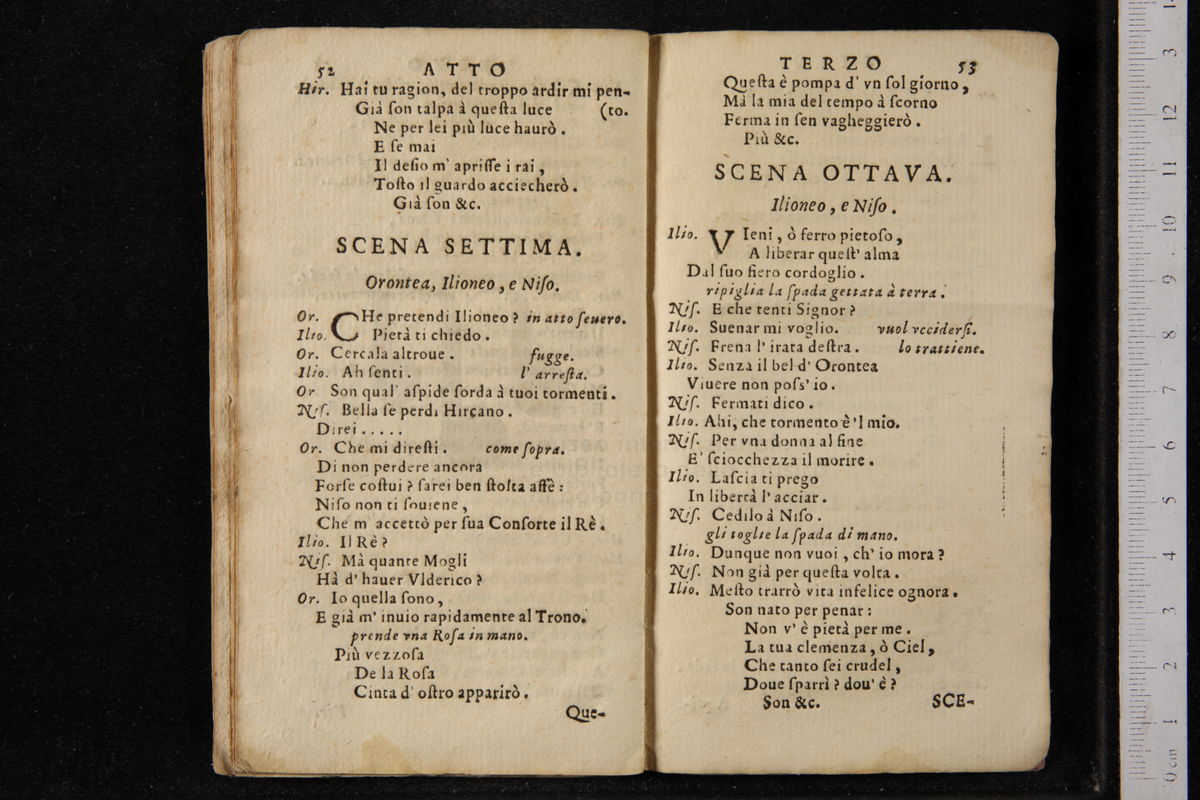 52 ATTO
Hir. Hai tu ragion, del troppo ardir mi pen-
Già ſon talpa à queſta luce (to.
Ne per lei più luce haurò.
E ſe mai
Il deſio m' apriſſe i rai,
Toſto il guardo acciecherò.
Già ſon &c.
SCENA SETTIMA.
Orontea, Ilioneo, e Niſo.
Or. CHe pretendi Ilioneo? in atto ſeuero.
Ilio. Pietà ti chiedo.
Or. Cercala altroue. fugge.
Ilio. Ah ſenti. l' arreſta.
Or Son qual' aſpide ſorda à tuoi tormenti.
Niſ. Bella ſe perdi Hircano.
Direi.....
Or. Che mi direſti. come ſopra.
Di non perdere ancora
Forſe coſtui? ſarei ben ſtolta affè:
Niſo non ti ſouiene,
Che m' accettò per ſua Conſorte il Rè.
Ilio. Il Rè?
Niſ. Mà quante Mogli
Hà d' hauer Vlderico?
Or. Io quella ſono,
E già m' inuio rapidamente al Trono.
prende vna Roſa in mano.
Più vezzoſa
De la Roſa
Cinta d' oſtro apparirò.
Que-
TERZO 53
Queſta è pompa d' vn ſol giorno,
Mà la mia del tempo à ſcorno
Ferma in ſen vagheggierò.
Più &c.
SCENA OTTAVA.
Ilioneo, e Niſo.
Ilio. VIeni, ò ferro pietoſo,
A liberar queſt' alma
Dal ſuo fiero cordoglio.
ripiglia la ſpada gettata à terra.
Niſ. E che tenti Signor?
Ilio. Suenar mi voglio. vuol vcciderſi.
Niſ. Frena l' irata deſtra. lo trattiene.
Ilio. Senza il bel d' Orontea
Viuere non poſs' io.
Niſ. Fermati dico.
Ilio. Ahi, che tormento è 'l mio.
Niſ. Per vna donna al fine
E' ſciocchezza il morire.
Ilio. Laſcia ti prego
In libertà l' acciar.
Niſ. Cedilo à Niſo.
gli toglie la ſpada di mano.
Ilio. Dunque non vuoi, ch' io mora?
Niſ. Non già per queſta volta.
Ilio. Meſto trarrò vita infelice ognora.
Son nato per penar:
Non v' è pietà per me.
La tua clemenza, ò Ciel,
Che tanto ſei crudel,
Doue ſparrì? dou' è?
Son &c. SCE-
0 cm 1 2 3 4 5 6 7 8 9 10 11 12 3 14